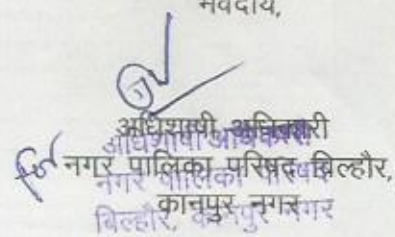 भवदीय,
अधिशाषी अधिकारी
नगर पालिका परिषद बिल्हौर,
कानपुर नगर
अधिशाषी अधिकारी
नगर पालिका परिषद
बिल्हौर, कानपुर नगर